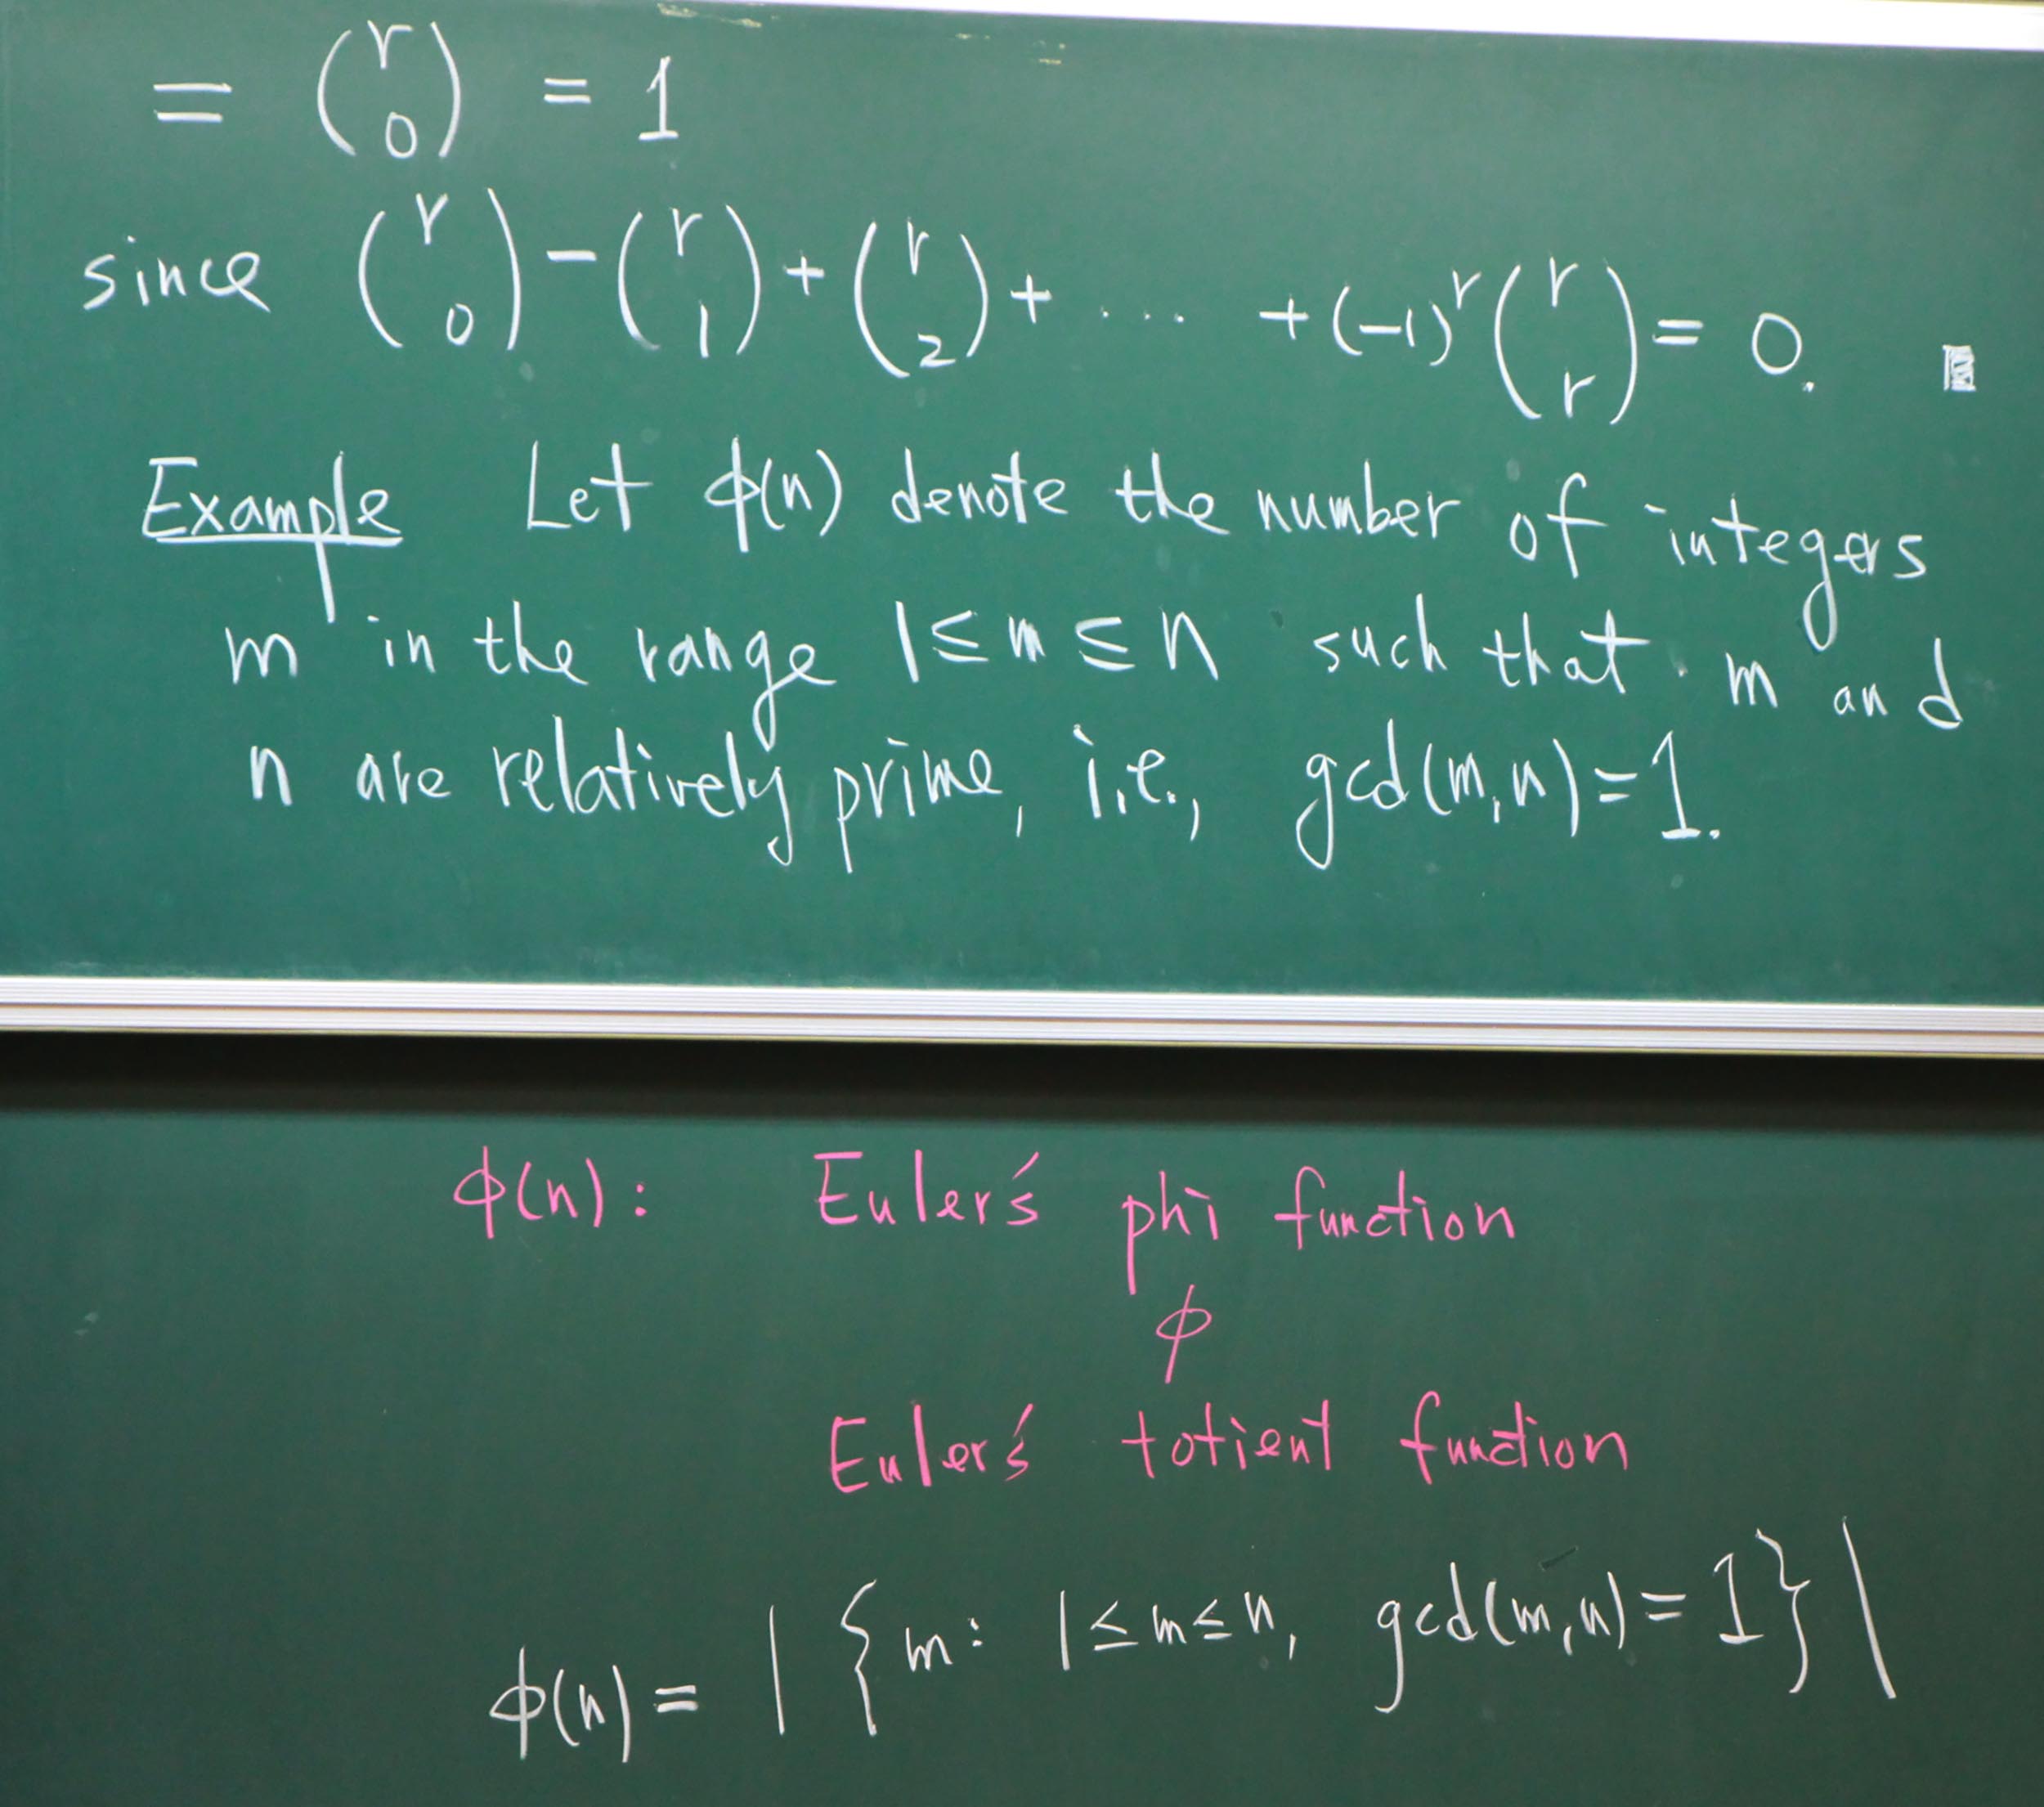 = (r 0) = 1
since (r 0) - (r 1) + (r 2) + ... + (-1)^r (r r) = 0.
Example Let ϕ(n) denote the number of integers
m in the range 1 ≤ m ≤ n such that m and
n are relatively prime, i.e., gcd(m,n)=1.
ϕ(n): Euler's phi function
ϕ
Euler's totient function
ϕ(n) = | {m: 1≤m≤n, gcd(m,n)=1} |